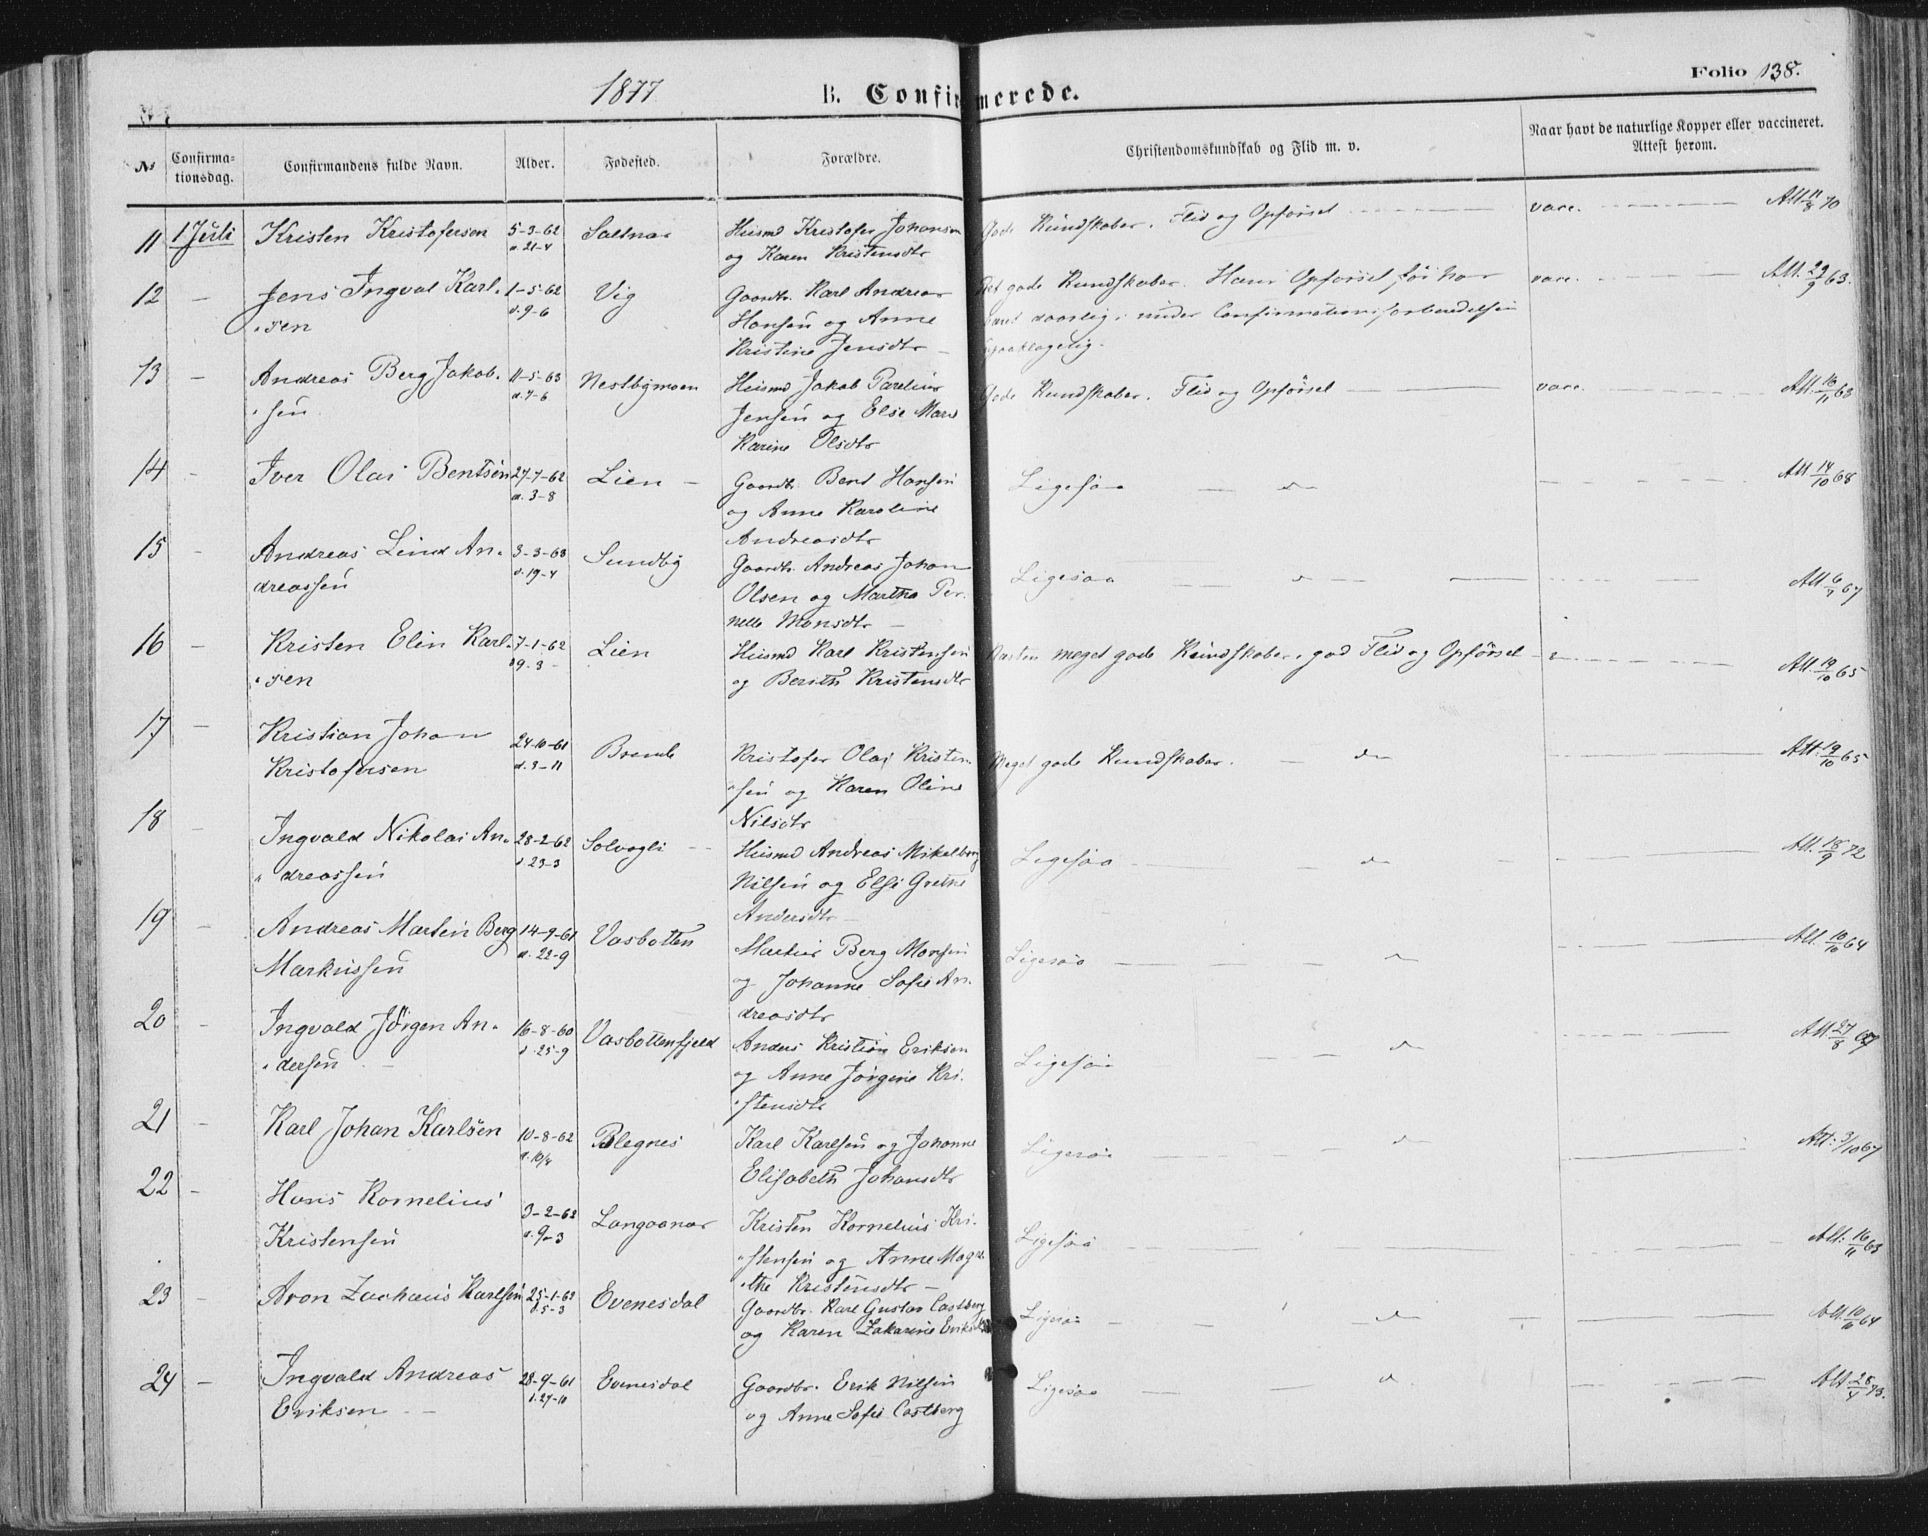 1877 B. Confirmerede. Folio 138.
No Confirma-tionsdag. Confirmandens fulde Navn. Alder. Fødested. Forældre. Christendomskundskab og Flid m. v. Naar havt de naturlige Kopper eller vaccineret. Attest herom.
11 1 Juli Kristen Kristofersen 5-3-62 Saltnar Huusmd Kristofer Johansen Gode Kundskaber. Flid og Opførsel vacc. Att 11/8 70
d. 21-4 og Karen Kristensdtr
12 – Jens Ingval Karl- 1-5-62 Vig Gaardbr. Karl Andreas gode Kundskaber. Hans Opførsel før har vacc. Att. 29/9 63.
sen d. 9-6 Hansen og Anne været daarlig; under Confirmationsforberedelsen
Kristine Jensdtr – upaaklagelig.
13 – Andreas Berg Jakob- 11-5-63 Nestbymoen Huusmd Jakob Parelius Gode Kundskaber. Flid og Opførsel vacc. Att. 16/11 63
sen d. 7-6 Jensen og Else Mare
Karine Olsdtr
14 – Iver Olai Bentsen 27-7-62 Lien – Gaardb. Bent Hansen Ligesaa – do Att 14/10 68
d. 3-8 og Anne Karoline
Andreasdtr
15 – Andreas Lind An- 3-3-63 Sundby Gaardb. Andreas Johan Ligesaa Att 6/7 67
dreassen d. 19-4 Olsen og Martha Per-
nelle Monsdtr –
16 – Kristen Elin Karl- 7-1-62 Lien Huusmd Karl Kristensen Næsten meget gode Kundskaber, god Flid og Opførsel Att. 19/10 65
sen 9-3 og Berith Kristensdtr
17 – Kristian Johan 24-10-61 Kristofer Olai Kristen- Meget gode Kundskaber. – do Att. 19/10 65
Kristofersen d. 3-11 sen og Karen Oline
Nilsdtr
18 – Ingvald Nikolai An- 28-2-62 Solvogli Huusmd Andreas Mikalberg Ligesaa do Att. 18/9 72
dreassen d. 23-3 Nilsen og Else Grethe
Andersdtr –
19 – Andreas Martin Berg 14-9-61 Vasbotten Markus Berg Monsen Ligesaa do Att. 10/10 64
Markussen d. 22-9 og Johanne Sofie An-
dreasdtr
20 – Ingvald Jörgen An- 16-8-60 Vasbottenfjeld Anders Kristian Eriksen Ligesaa do Att 27/8
dersen d. 25-9 og Anne Jörgine Kri-
stensdtr
21 – Karl Johan Karlsen 10-8-62 Blegnes Karl Karlsen og Johanne Ligesaa do Att. 3/10 67
Elisabeth Johansdtr
22 – Hans Kornelius 3-2-62 Langaanar Kristen Kornelius Kri- Ligesaa Att. 16/11 63
Kristensen d. 9-3 stensen og Anne Magre-
the Kristensdtr –
23 – Aron Zachæus Karlsen 25-1-62 Evenesdal Gaardbr. Karl Gustav Castberg Ligesaa do Att. 10/10 64
d. 5-3 og Karen Zakarine
24 – Ingvald Andreas 28-9-61 Evenesdal Gaardbr. Erik Nilsen Ligesaa do Att
Eriksen d. 27-10 og Anne Sofie Castberg